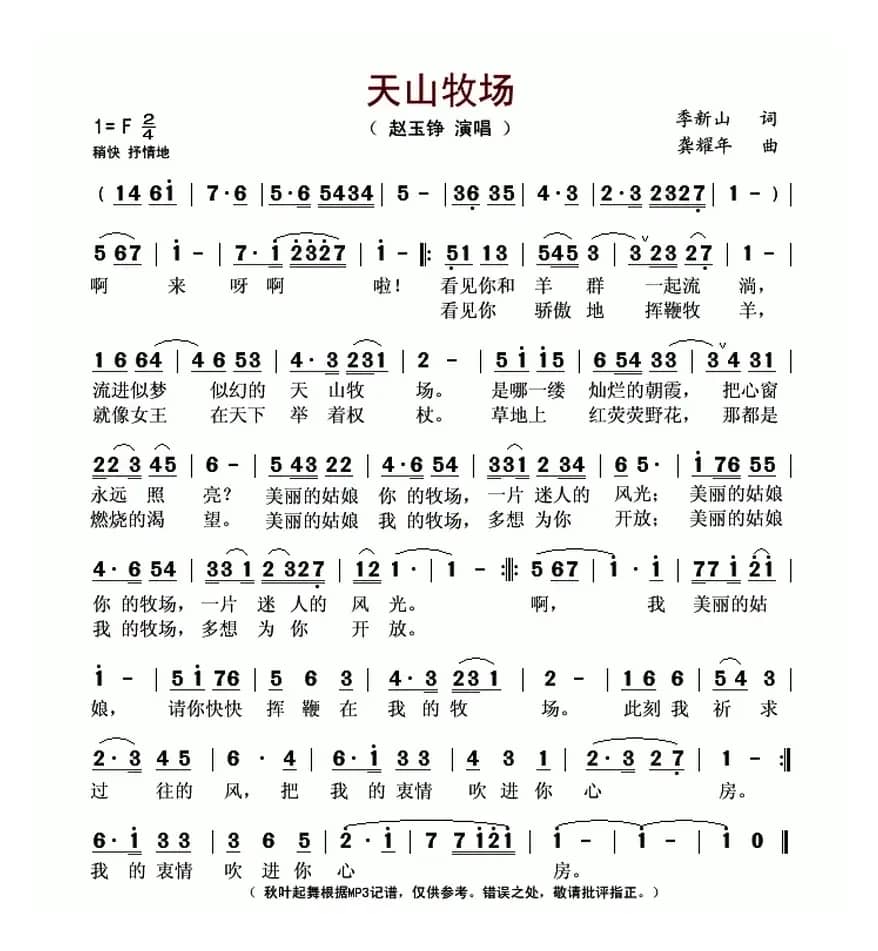 天山牧场
1=F 2/4
（ 赵玉铮 演唱 ）
季新山 词
稍快 抒情地
龚耀年 曲
（ 14 61 | 7·6 | 5·6 5434 | 5 - | 36 35 | 4·3 | 2·3 2327 | 1 - ）|
5 67 | 1 - | 7·1 2327 | 1 - |: 51 13 | 545 3 | 3 23 27 | 1 - |
啊 来 呀 啊 啦！ 看见你和 羊 群 一起流 淌，
看见你 骄傲 地 挥鞭牧 羊，
1 6 64 | 4 6 53 | 4·3 231 | 2 - | 5 1 15 | 65 54 33 | 3 4 31 |
流进似梦 似幻的 天 山牧 场。 是哪一缕 灿烂的朝霞， 把心窗
就像女王 在天下 举 着权 杖。 草地上 红荧荧野花， 那都是
22 3 45 | 6 - | 5 43 22 | 4·6 54 | 331 2 34 | 6 5· | 1 76 55 |
永远 照 亮？ 美丽的姑娘 你 的牧场，一片 迷人的 风光；美丽的姑娘
燃烧的渴 望。 美丽的姑娘 我 的牧场，多想 为你 开放；美丽的姑娘
4·6 54 | 33 1 2 327 | 12 1· | 1 - :|: 5 67 | 1·1 | 77 1 21 |
你 的牧场，一片 迷 人的 风 光。 啊， 我 美丽的姑
我 的牧场，多想 为 你 开 放。
1 - | 5 1 76 | 5 6 3 | 4·3 231 | 2 - | 1 6 6 | 5 4 3 |
娘， 请你快快 挥 鞭 在 我 的 牧 场。 此刻 我 祈 求
2·3 4 5 | 6·4 | 6·1 33 | 4 3 1 | 2·3 2 7 | 1 - :|
过 往的 风，把 我 的 衷情 吹 进 你 心 房。
6·1 33 | 3 6 5 | 2·1 | 7 7121 | 1 - | 1 - | 1 0 |
我 的 衷情 吹 进 你 心 房。
（ 秋叶起舞根据MP3记谱，仅供参考。错误之处，敬请批评指正。）